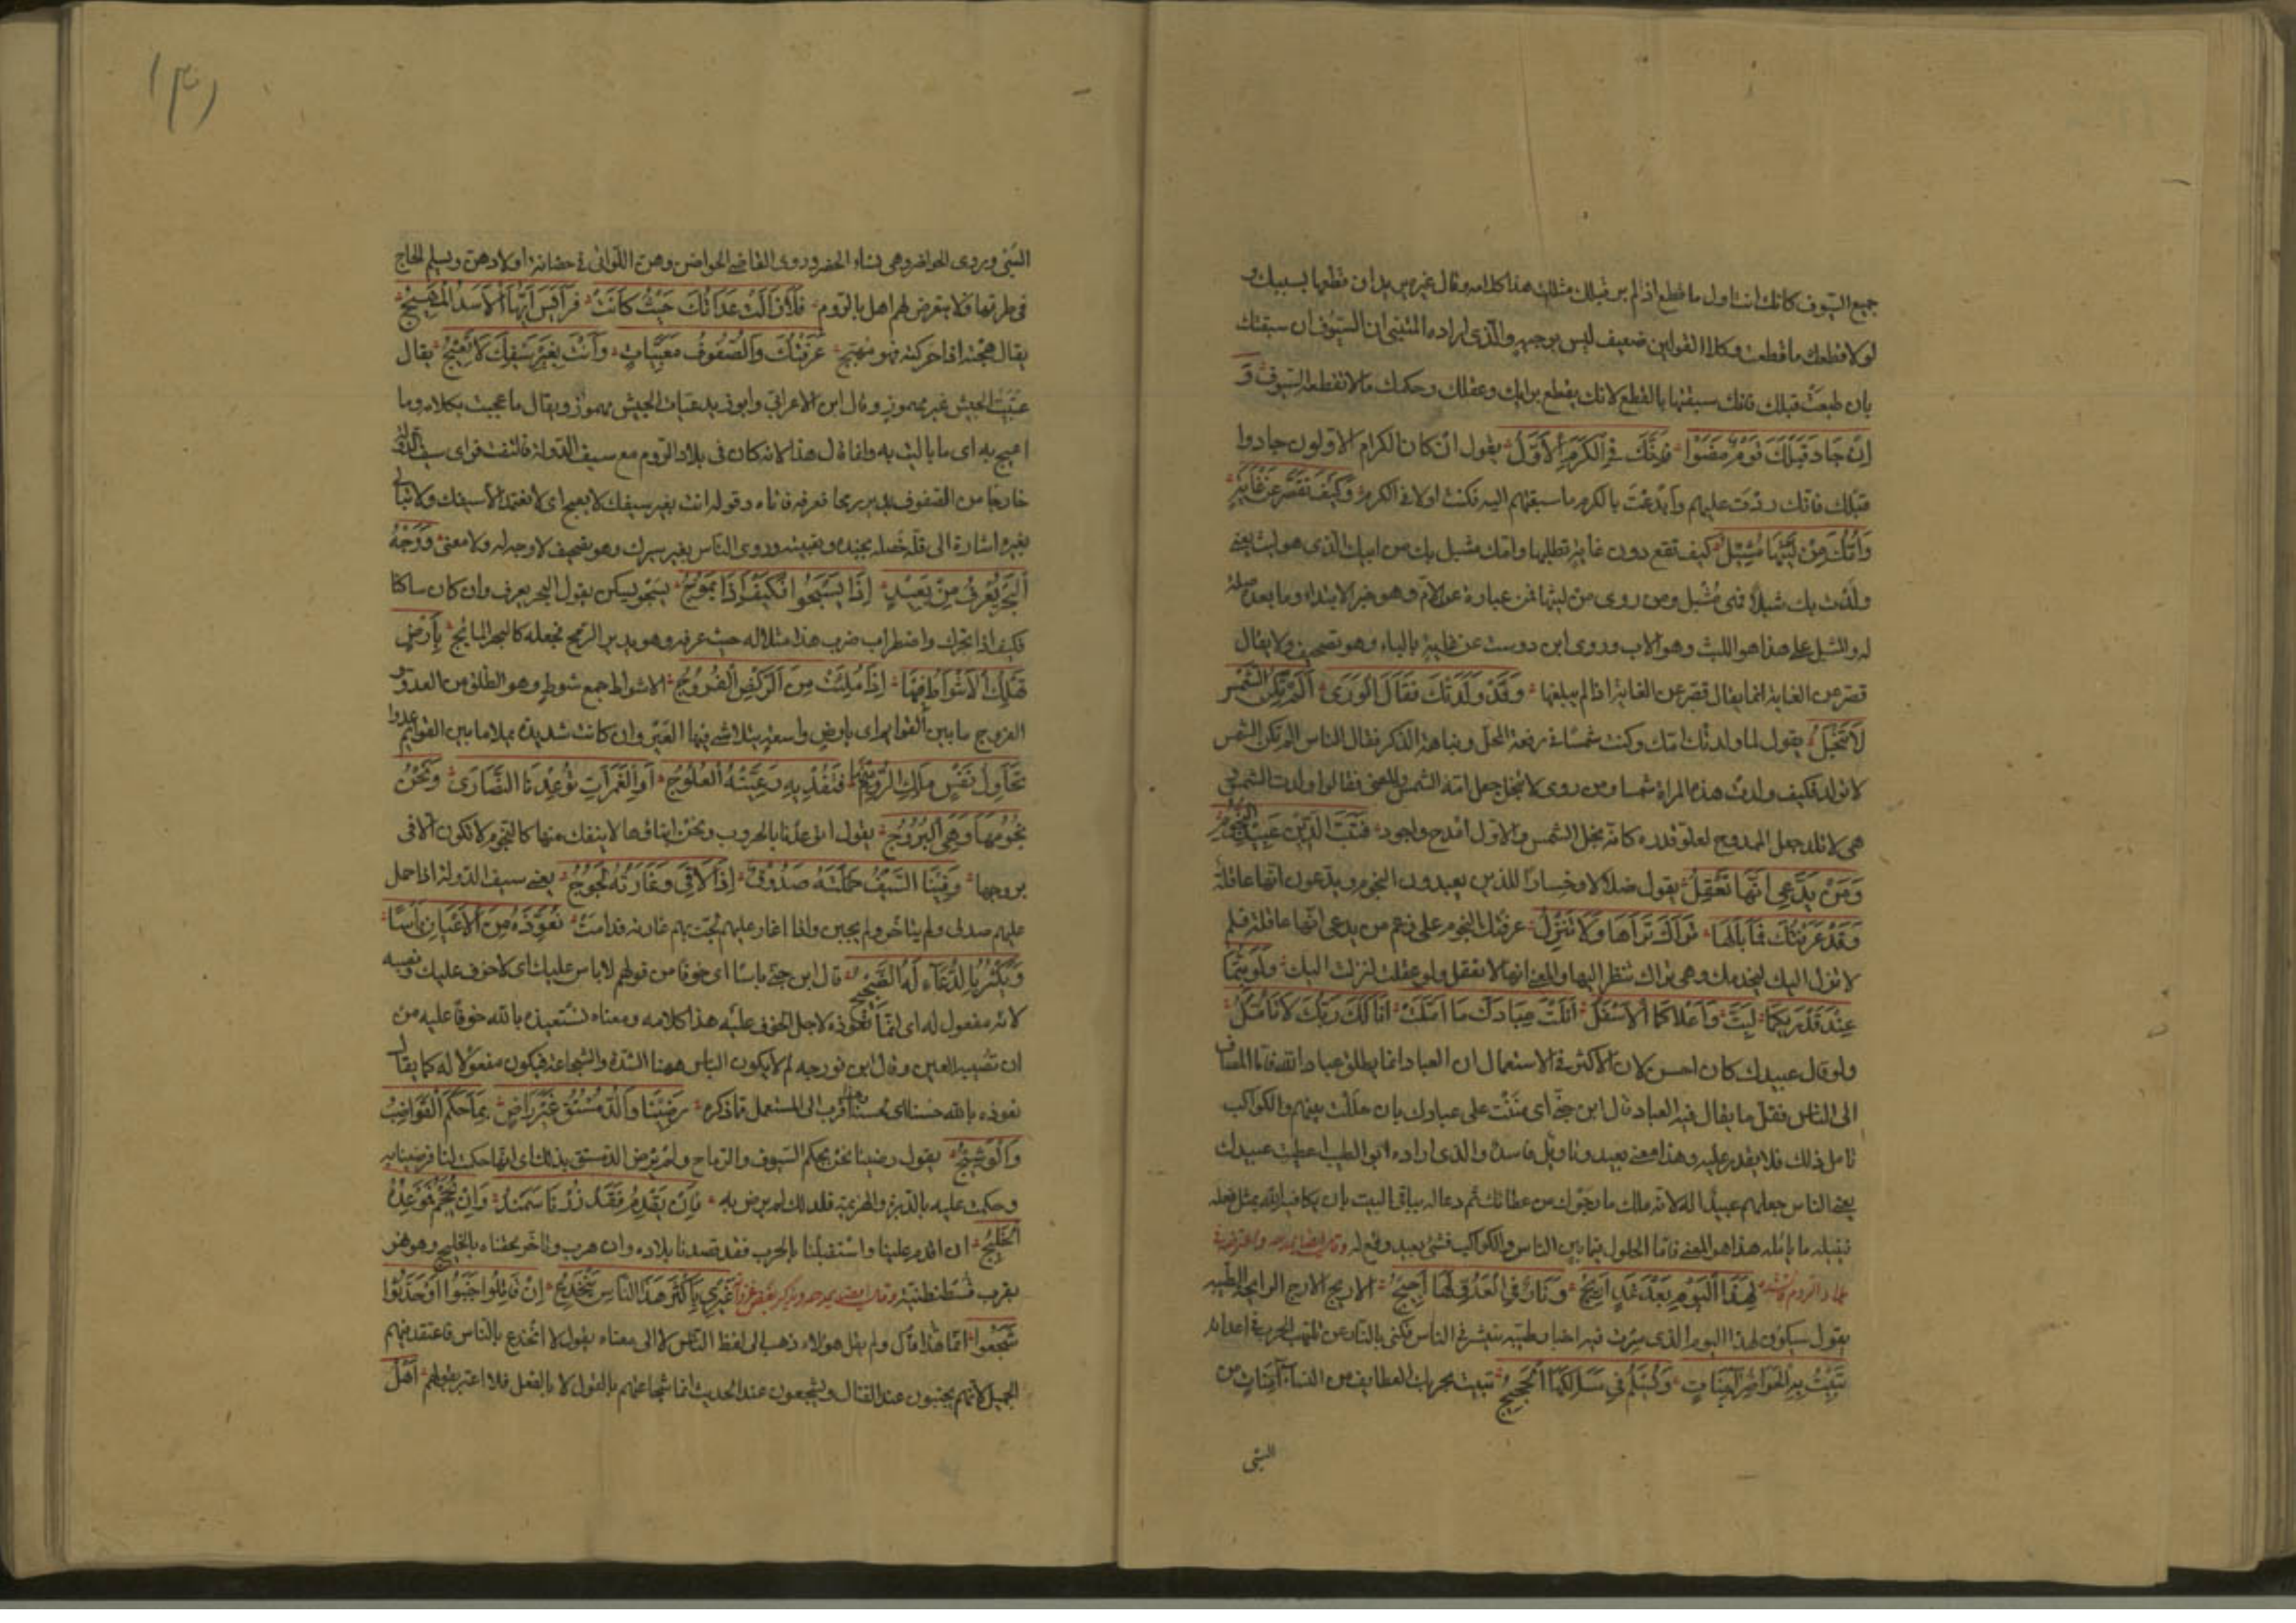 جميع السيوف كانك انت اول ما قطع اذ لم ير قبلك مثلك هذا كلامه وقال غيره يريد ان قطعها بسببك و
لولا قطعك ما قطعت وكلا القولين ضعيف ليس بوجيه والذى اراده المتنبى ان السيوف ان سبقتك
بان طبعت قبلك فانك سبقتها بالقطع لانك يقطع برايك وعقلك وحكمك ما لا تقطعه السيوف و
اِنْ جَادَ قَبْلَكَ قَوْمٌ مَضَوْا فَاِنَّكَ فِى الكَرَمِ الأَوَّلُ يقول ان كان الكرام الاولون جادوا
قبلك فانك زدت عليهم وابدعت بالكرم ما سبقتهم اليه فكنت اولا فى الكرم وَكَيْفَ تُقَصِّرُ عَنْ غَايَةٍ
وَاُمُّكَ مِنْ لَيْثِهَا مُشْبِلُ كيف تقع دون غاية تطلبها وامك مشبل بك من ابيك الذى هو ليث يعنى
ولدت بك شبلا فهى مشبل ومن روى من ليثها فمن عبارة عن الام وهو خبر الابتداء وما بعده صلة
له والشبل على هذا هو الليث وهو الاب وروى ابن دوست عن غايبة بالباء وهو تصحيف ولا يقال
قصر عن الغاية انما يقال قصر عن الغاية اذا لم يبلغها وَقَدْ وَلَدَتْكَ فَقَالَ الوَرَى اَلَمْ تَكُنِ الشَّمْسُ
لَا تُنْجَلُ يقول لما ولدتك امك وكنت شمسا فى رفعة المحل ونباهة الذكر فقال الناس الم تكن الشمس
لا تولد فكيف ولدت هذه المراة شمسا ومن روى لا تنجل جعل امه الشمس والمعنى فقالوا ولدت الشمس
هى لا تلد جعل الممدوح لعلو قدره كانه نجل الشمس والاول امدح واجود فَتَبًّا لِدِينِ عَبِيدِ النُّجُومِ
وَمَنْ يَدَّعِى اَنَّهَا تَعْقِلُ يقول ضلالا وخسارا للذين يعبدون النجوم ويدعون انها عاقلة
وَقَدْ عَرَفَتْكَ فَمَا بَالُهَا تَرَاكَ تَرَاهَا وَلَا تَنْزِلُ عرفتك النجوم على زعم من يدعى انها عاقلة فلم
لا تنزل اليك لتخدمك وهى تراك تنظر اليها والمعنى انها لا تعقل ولو عقلت لنزلت اليك وَلَوْ بِتُّمَا
عِنْدَ قَدْرَيْكُمَا لَبِتَّ وَاَعْلَاكُمَا الأَسْفَلُ اَنَلْتَ عِبَادَكَ مَا اَمَّلَتْ اَنَالَكَ رَبُّكَ لَا تَأْمُلُ
ولو قال عبيدك كان احسن لان الاكثر فى الاستعمال ان العباد انما يطلق عباد الله فاما المضاف
الى الناس فقل ما يقال فيه العباد قال ابن جنى اى مننت على عبادك بان حللت بينهم والكواكب
تامل ذلك فلا يقدر عليه وهذا معنى بعيد وتاويل فاسد والذى اراده ابو الطيب اعطيت عبيدك
يعنى الناس جعلهم عبيدا له لانه ملك ما رجوك من عطائك ثم دعا له بباقى البيت بان يكافيه الله بمثل فعله
فينيله ما يامله هذا هو المعنى فاما الحلول فيما بين الناس والكواكب فشئ بعيد وقع له وقال ايضا يمدحه
لِهَذَا الْيَوْمِ بَعْدَ غَدٍ اَرِيجُ وَنَارٌ فِى الْعَدُوِّ لَهَا اَجِيجُ الاريج الارج الرائحة الطيبة
يقول سيكون لهذا اليوم الذى سرت فيه اخبار طيبة تنتشر فى الناس فكنى بالنار عن تلهب الحرب فى اعدائه
تَبِيتُ بِهِ الْحَوَاضِنُ آمِنَاتٍ وَتَسْلَمُ فِى مَسَالِكِهَا الْحَجِيجُ تبيت بحربك العطايف من النساء آمنات من
السبى
السبى ويروى الحواضر وهى نساء الحضر وروى القاضى الحواضن وهن اللواتى فى حضانة اولادهن ويسلم الحاج
فى طرقها ولا يتعرض لهم اهل بالروم فَلَا زَالَتْ عُدَاتُكَ حَيْثُ كَانَتْ فَرَائِسَ اَيُّهَا الْاَسَدُ الْمَهِيجُ
يقال هجته اذا حركته فهو مهيج عَرَفْتُكَ وَالصُّفُوفُ مُعَبَّيَاتٌ وَاَنْتَ بِغَيْرِ سَيْفِكَ لَا تَعِيجُ يقال
عبيت الجيش غير مهموز وقال ابن الاعرابى وابو زيد عبات الجيش مهموز ويقال ما عجيت بكلامه وما
اعيج به اى ما باليت به وانما قال هذا لانه كان فى بلاد الروم مع سيف الدولة فالتفت فراى سيف الدولة
خارجا من الصفوف يدير رمحا فعرفه فاتاه وقوله انت بغير سيفك لا تعيج اى لا تعتمد الا سيفك ولا تبالى
بغيره اشارة الى قلة حفله بجنده وتعبيته وروى الناس بغير سيرك وهو تصحيف لا وجه له ولا معنى وَوَجْهُ
الْبَحْرِ يُعْرَفُ مِنْ بَعِيدٍ اِذَا يَسْجُو فَكَيْفَ اِذَا يَمُوجُ يسجو يسكن يقول البحر يعرف وان كان ساكنا
فكيف اذا تحرك واضطراب ضرب هذا مثلا له حيث عرفه وهو يدير الرمح فجعله كالبحر المايج بِاَرْضٍ
تَهْلِكُ الْاَشْوَاطُ فِيهَا اِذَا مُلِئَتْ مِنَ الرَّكْضِ الْفُرُوجُ الاشواط جمع شوط وهو الطلق من العدو و
الفروج ما بين القوايم اى بارض واسعة يتلاشى فيها العدو وان كانت شديدة يملا ما بين القوايم عدوا
تُحَاوِلُ نَفْسَ مَلْكِ الرُّومِ فِيهَا فَتَفْدِيهِ رَعِيَّتُهُ الْعُلُوجُ اَبِالْغَمَرَاتِ تُوعِدُنَا النَّصَارَى وَنَحْنُ
نُجُومُهَا وَهِىَ الْبُرُوجُ يقول اتوعدنا بالحروب ونحن ابناؤها لا ينفك منها كالنجوم لا تكون الا فى
بروجها وَفِينَا السَّيْفُ حَمْلَتُهُ صَدُوقٌ اِذَا لَاقَى وَغَارَتُهُ لَجُوجُ يعنى سيف الدولة اذا حمل
عليهم صدق ولم يتاخر ولم يجبن واذا اغار عليهم لجت بهم غارته فدامت نُعَوِّذُهُ مِنَ الْاَعْيَانِ بَأْسًا
وَيَكْثُرُ بِالدُّعَاءِ لَهُ الضَّجِيجُ قال ابن جنى باسا اى خوفا من قولهم لا باس عليك اى لا خوف عليك ونصبه
لانه مفعول له اى انما نعوذه لاجل الخوف عليه هذا كلامه ومعناه نستعيذه بالله خوفا عليه من
ان تصيبه العين وقال ابن فورجه لم لا يكون الباس ههنا الشدة والشجاعة فيكون مفعولا له كما يقال
نعوذه بالله حسنا اى لحسنه وهذا اقرب الى المستعمل مما ذكره رَضِينَا وَالدُّمُسْتُقُ غَيْرُ رَاضٍ بِمَا حَكَمَ الْقَوَاضِبُ
وَالْوَشِيجُ يقول رضينا نحن بحكم السيوف والرماح ولم يرض الدمستق بذلك اى انها حكمت لنا فرضينا به
وحكمت عليه بالدبرة والهزيمة فلذلك لم يرض به فَاِنْ يَقْدُمْ فَقَدْ زُرْنَا سَمَنْدُو وَاِنْ يُحْجِمْ فَمَوْعِدُهُ
الْخَلِيجُ ان اقدم علينا واستقبلنا بالحرب فقد قصدنا بلاده وان هرب وتاخر لحقناه بالخليج وهو نهر
بقرب قسطنطنية وقال ايضا يمدحه ويذكر غَيْرِى بِاَكْثَرِ هَذَا النَّاسِ يَنْخَدِعُ اِنْ قَاتَلُوا جَبُنُوا اَوْ حَدَّثُوا
شَجُعُوا انما هذا قال ولم يقل هؤلاء ذهب الى لفظ الناس لا الى معناه يقول لا انخدع بالناس فاعتقد فيهم
الجميل لانهم يجبنون عند القتال ويشجعون عند الحديث انما شجاعتهم بالقول لا بالفعل فلا اغتر بقولهم اَهْلُ